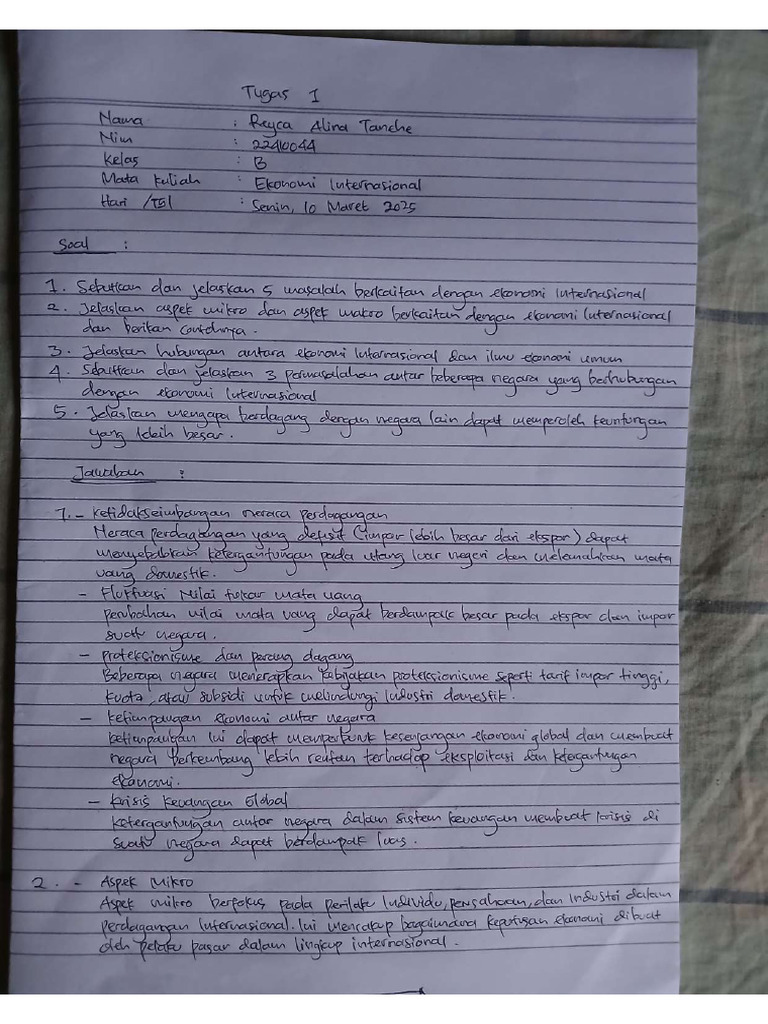 Tugas 1
Nama : Reyca Alina Tanche
Nim : 22410044
Kelas : B
Mata Kuliah : Ekonomi Internasional
Hari /Tgl : Senin, 10 Maret 2025
Soal :
1. Sebutkan dan jelaskan 5 masalah berkaitan dengan ekonomi Internasional
2. Jelaskan aspek mikro dan aspek makro berkaitan dengan ekonomi Internasional
dan berikan contohnya.
3. Jelaskan hubungan antara ekonomi Internasional dan ilmu ekonomi umum
4. Sebutkan dan jelaskan 3 permasalahan antar beberapa negara yang berhubungan
dengan ekonomi Internasional
5. Jelaskan mengapa berdagang dengan negara lain dapat memperoleh keuntungan
yang lebih besar.
Jawaban :
1. - Ketidakseimbangan neraca perdagangan
Neraca perdagangan yang defisit (impor lebih besar dari ekspor) dapat
menyebabkan ketergantungan pada utang luar negeri dan melemahkan mata
uang domestik.
- Fluktuasi Nilai tukar mata uang
perubahan nilai mata uang dapat berdampak besar pada ekspor dan impor
suatu negara.
- Proteksionisme dan perang dagang
Beberapa negara menerapkan kebijakan proteksionisme seperti tarif impor tinggi,
kuota, atau subsidi untuk melindungi Industri domestik.
- Ketimpangan ekonomi antar negara
ketimpangan Ini dapat memperburuk kesenjangan ekonomi global dan membuat
negara berkembang lebih rentan terhadap eksploitasi dan ketergantungan
ekonomi.
- Krisis Keuangan Global
Ketergantungan antar negara dalam sistem keuangan membuat krisis di
suatu negara dapat berdampak luas.
2. - Aspek Mikro
Aspek mikro berfokus pada perilaku Individu, perusahaan, dan Industri dalam
perdagangan Internasional. Ini mencakup bagaimana keputusan ekonomi dibuat
oleh pelaku pasar dalam lingkup internasional.